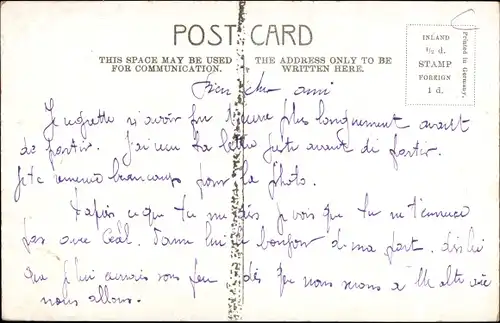 POST CARD
THIS SPACE MAY BE USED
FOR COMMUNICATION.
THE ADDRESS ONLY TO BE
WRITTEN HERE.
INLAND
½ d.
STAMP
FOREIGN
1 d.
Printed in Germany.
Bien cher ami
Je regrette n'avoir pu t'écrire plus longuement avant
de partir. J'ai reçu ta lettre juste avant de partir.
Je te remercie beaucoup pour la photo.
D'après ce que tu me dis je vois que tu ne t'ennuies
pas avec Donne lui le bonjour de ma part, dis lui
que je lui écrirais sous peu dès que nous serons à
nous allons.